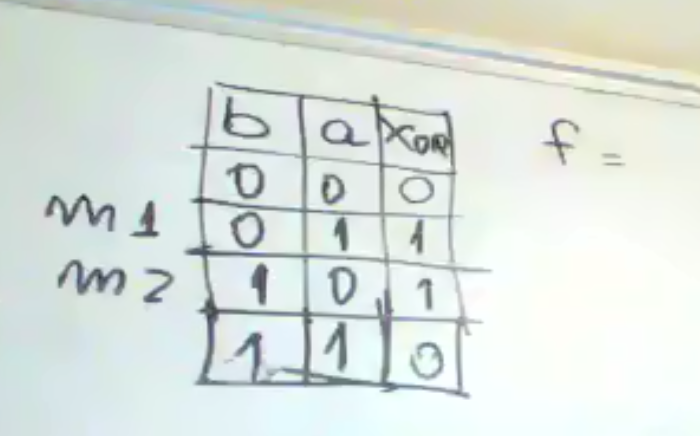 b a XOR f =
0 0 0
m1 0 1 1
m2 1 0 1
1 1 0